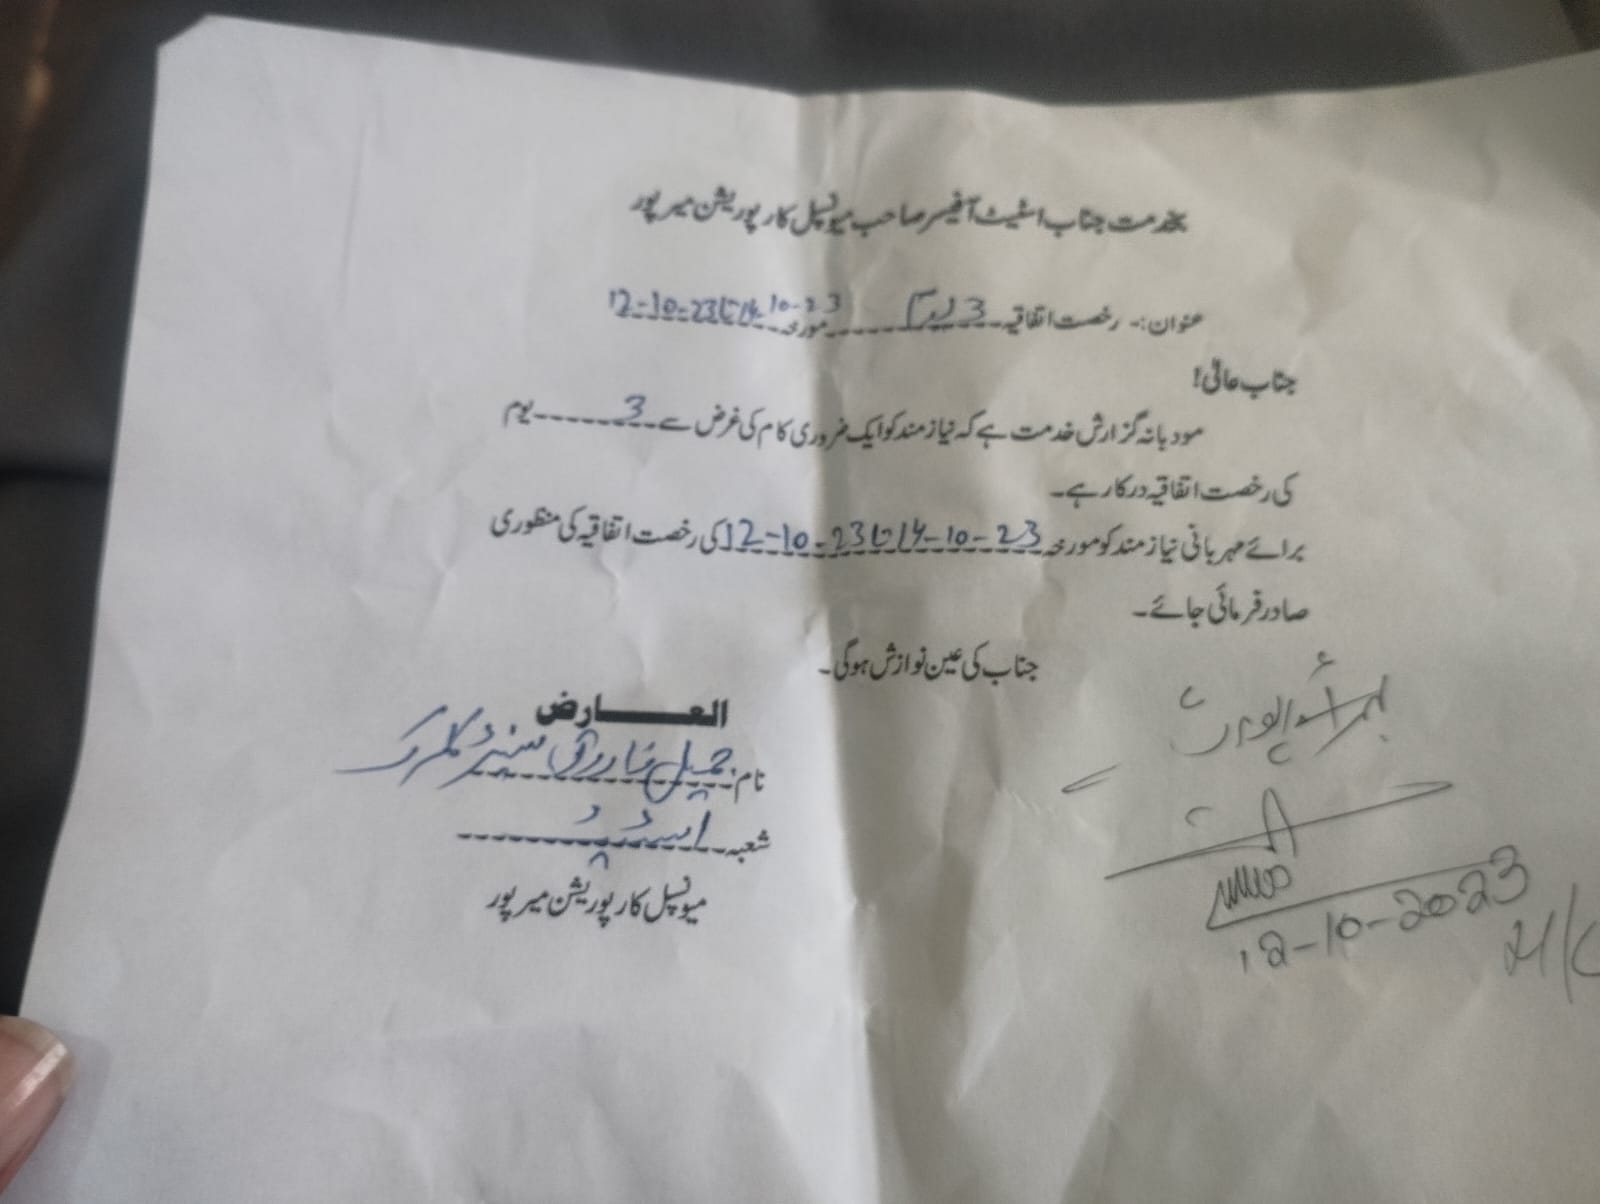 بخدمت جناب اسٹیٹ آفیسر صاحب میونسپل کارپوریشن میرپور
عنوان:- رخصت اتفاقیہ 3 یوم مورخہ 12-10-23 تا 14-10-23
جناب عالی!
مودبانہ گزارش خدمت ہے کہ نیازمند کو ایک ضروری کام کی غرض سے 3 یوم
کی رخصت اتفاقیہ درکار ہے۔
برائے مہربانی نیازمند کو مورخہ 12-10-23 تا 14-10-23 کی رخصت اتفاقیہ کی منظوری
صادر فرمائی جائے۔
جناب کی عین نوازش ہوگی۔
العارض
نام جمیل فاروق سنیئر کلرک
شعبہ اسٹیٹ
میونسپل کارپوریشن میرپور
برائے رپورٹ
12-10-2023